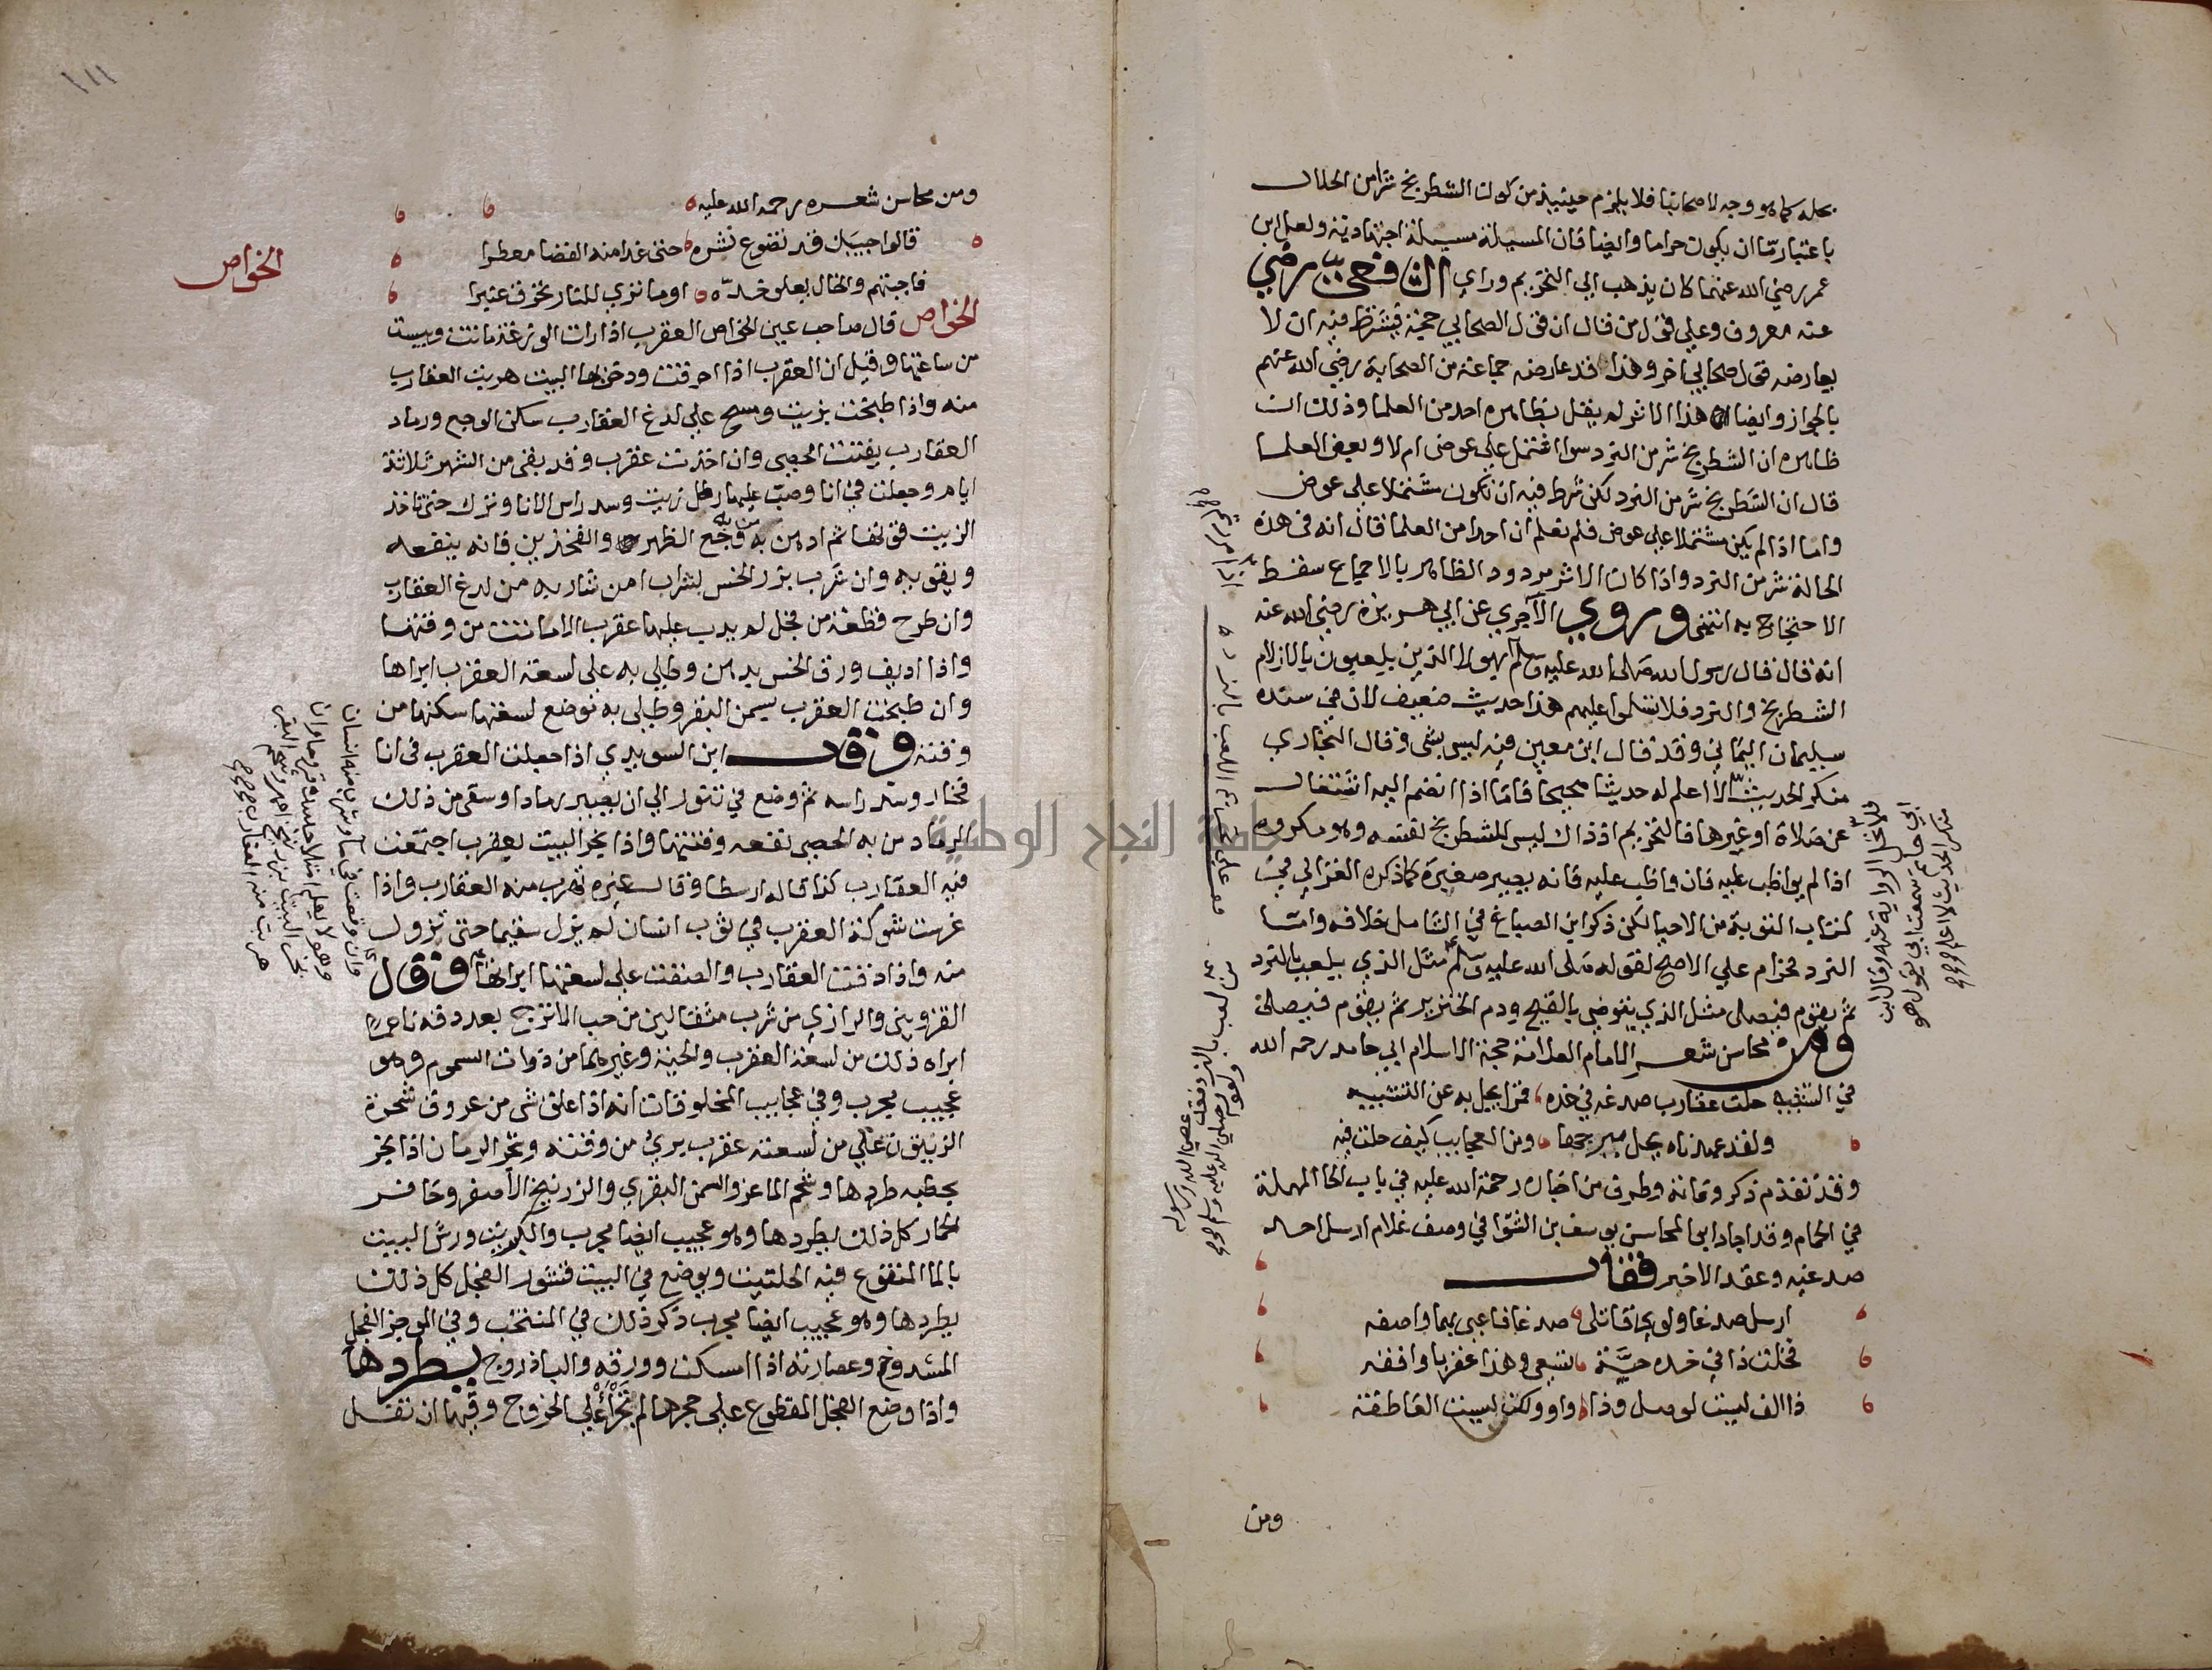 بحله كما هو وجه لاصحابنا فلا يلزم حينيذ من كون الشطرنج شرا من الحلال
باعتبار ما ان يكون حراما وايضا فان المسيلة مسيلة اجتهادية ولعل ابن
عمر رضي الله عنهما كان يذهب الي التحريم وراي الشافعي رضي
عنه معروف وعلي قول من قال ان قول الصحابي حجة فيشترط فيه ان لا
يعارضه قول صحابي اخر وهذا قد عارضه جماعة من الصحابة رضي الله عنهم
بالجواز وايضا هذا الاثر لم يقل بظاهره احد من العلما وذلك ان
ظاهره ان الشطرنج شر من النرد سوا اشتمل علي عوض ام لا وبعض العلما
قال ان الشطرنج شر من النرد لكن شرط فيه ان تكون مشتملا علي عوض
واما اذا لم يكن مشتملا علي عوض فلم نعلم ان احدا من العلما قال انه في هذه
الحالة شر من النرد واذا كان الاثر مردود الظاهر بالاجماع سقط
الاحتجاج به انتهى وروي الآجري عن ابي هريرة رضي الله عنه
انه قال قال رسول الله صلى الله عليه وسلم اذا مررتم بهولا الذين يلعبون بالازلام
الشطرنج والنرد فلا تسلموا عليهم هذا حديث ضعيف لان في سنده
سليمان اليماني وقد قال ابن معين فيه ليس بشي وقال البخاري
منكر الحديث لا اعلم له حديثا صحيحا فاما اذا انضم اليه اشتغال
عن صلاة او غيرها فالتحريم اذ ذاك ليس للشطرنج لنفسه وهو مكروه
اذا لم يواظب عليه فان واظب عليه فانه يصير صغيرة كما ذكره الغزالي في
كتاب التوبة من الاحيا لكن ذكر ابن الصباغ في الشامل خلافه واما
النرد فحرام علي الاصح لقوله صلى الله عليه وسلم مثل الذي يلعب بالنرد
ثم يقوم فيصلي مثل الذي يتوضي بالقيح ودم الخنزير ثم يقوم فيصلي
ومن محاسن شعر الامام العلامة حجة الاسلام ابي حامد رحمه الله
في التشبيه حلت عقارب صدغه في خده قمرا يجل به عن التشبيه
ولقد عهدناه يحل ببرجها ومن العجايب كيف حلت فيه
وقد تقدم ذكر وفاته وطرف من اخباره رحمة الله عليه في باب الحا المهملة
في الحمام وقد اجاد ابي المحاسن يوسف بن الشوا في وصف غلام ارسل احد
صدغيه وعقد الاخير فقال
ارسل صدغا ولوي قاتلى صدغا فاعيى بهما واصفه
فخلت ذا في خده حية تسعي وهذا عقربا واقفه
ذا الف ليست لوصل وذا واو ولكن ليست العاطفه
ومن
ومن محاسن شعره رحمة الله عليه
قالوا حبيبك قد تضوع نشره حتى غدا منه الفضا معطرا
فاجبتهم والخال يعلو خده اوما تري النار تحرق عنبرا
الخواص
الخواص قال صاحب عين الخواص العقرب اذا رات الوزغة ماتت ويبست
من ساعتها وقيل ان العقرب اذا احرقت ودخن بها البيت هربت العقارب
منه واذا طبخت بزيت ومسح علي لدغ العقارب سكن الوجع ورماد
العقارب يفتت الحصي وان اخذت عقرب وقد بقي من الشهر ثلاثة
ايام وجعلت في انا وصب عليها رطل زيت وسد راس الانا وترك حتى تاخذ
الزيت قوتها ثم ادهن به من به وجع الظهر والفخذين فانه ينفعه
ويقويه وان شرب بزر الخس بشراب امن شاربه من لدغ العقارب
وان طرح قطعة من فجل لم يدب عليها عقرب الا ماتت من وقتها
واذا اديف ورق الخس بدهن وطلي به على لسعة العقرب ابراها
وان طبخت العقرب بسمن البقر وطلي به موضع لسعتها سكنها من
وقته وقال ابن السويدي اذا جعلت العقرب في انا
فخار وسد راسه ثم وضع في تنور الي ان يصير رمادا وسقى من ذلك
الرماد من به الحصى نفعه وفتتها واذا بخر البيت بعقرب اجتمعت
فيه العقارب كذا قاله ارسطا وقال غيره تهرب منه العقارب واذا
غرست شوكة العقرب في ثوب انسان لم يزل سقيما حتى تزول
منه واذا دقت العقارب والصقت علي لسعتها ابراها وقال
القزويني والرازي من شرب مثقالين من حب الاترج بعد دقه ناعما
ابراه ذلك من لسعة العقرب والحية وغيرهما من ذوات السموم وهو
عجيب مجرب وفي عجايب المخلوقات انه اذا علق شى من عروق شجرة
الزيتون علي من لسعته عقرب بري من وقته وشجر الرمان اذا بخر
بحطبه طردها وشحم الماعز والسمن البقري والزرنيخ الاصفر وحافر
الحمار كل ذلك يطردها وهو عجيب ايضا مجرب والكبريت ورش البيت
بالما المنقوع فيه الحلتيت ويوضع في البيت قشور الفجل كل ذلك
يطردها وهو عجيب ايضا مجرب ذكر ذلك في المنتخب وفي الموجز الفجل
المشدوخ وعصارته اذا امسكت وورقه والباذروج يطردها
واذا وضع الفجل المقطوع علي جحرها لم تجرا علي الخروج وقيها ان تفل